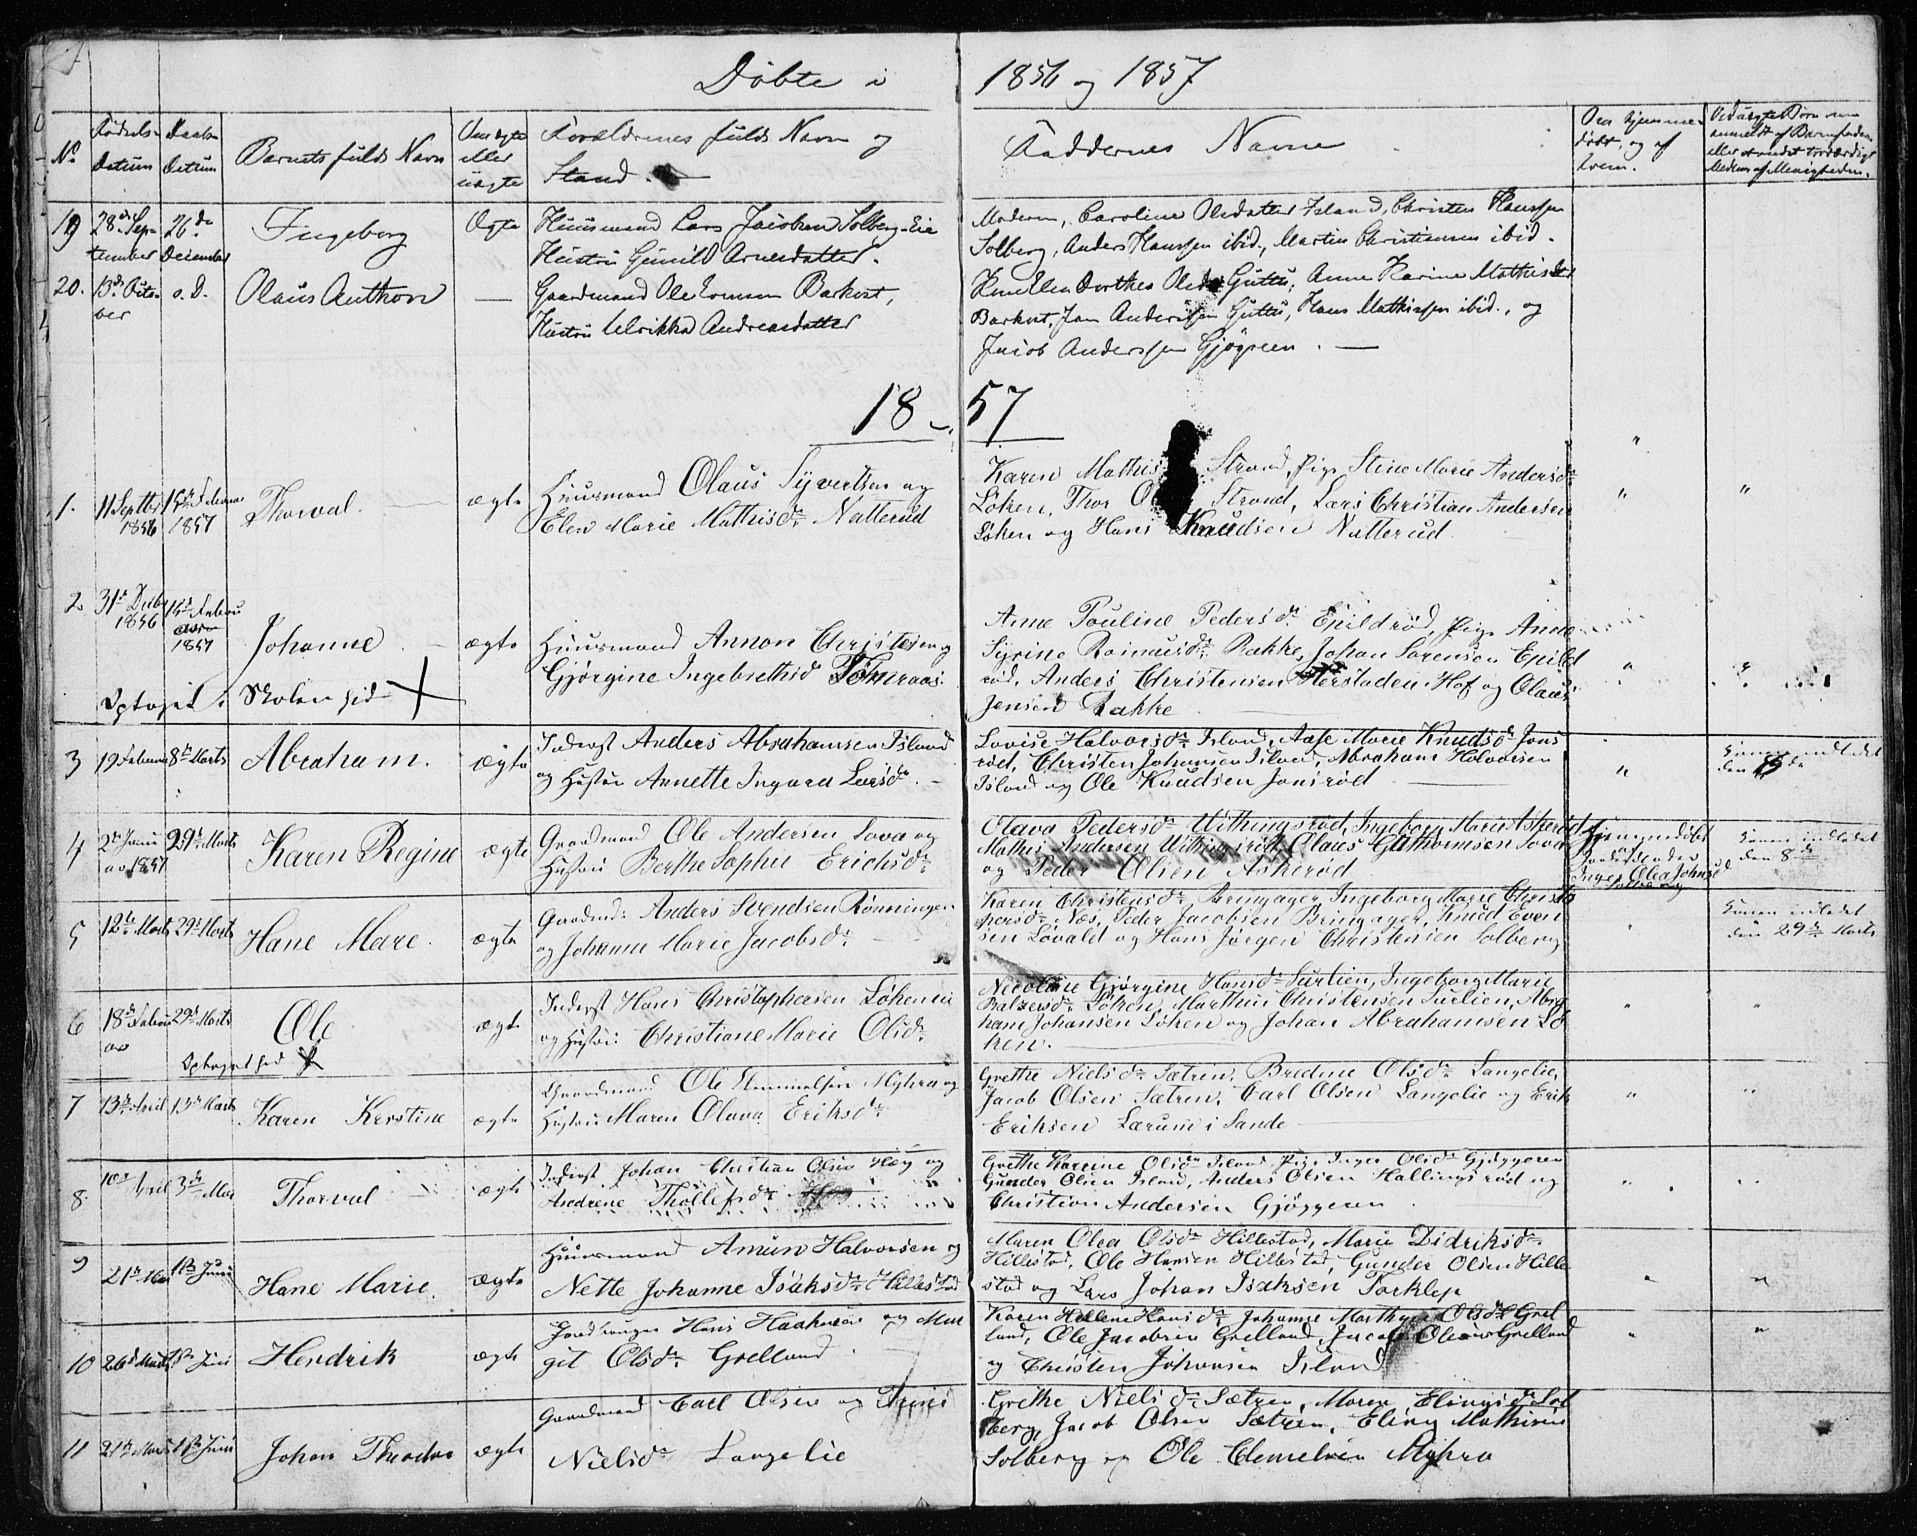 Döbte i 1856 og 1857
No
Fødsels-
Datum
Daabs-
Datum
Barnets fulde Navn
Om ægte
eller
uægte
Forældrenes fulde Navn og
Stand.
Faddernes Navne
Om hjemme-
døbt, og af
hvem.
Ved uægte Børn om
anmeldt af Barnefader
19 28de Sep- 26de Ingeborg Ægte Huusmand Lars Jacobsen Solberg-Eie
tember December Hustru Gunild Arnesdatter.
Moderen, Caroline Olsdatter Island, Christen Hanssen
Solberg, Anders Hanssen ibid., Martin Christiansen ibid.
20. 13de Octo- s. D. Olaus Anthon — Gaardmand Ole Barkost,
ber Hustru Ulrikka Andreasdatter
Dorthea Guttu, Anne Karine Mathisdtr
Barkost, Jan Anderssen Guttu, Hans Mathissen ibid., og
Jacob Anderssen Gjøgreen. —
18 - 57
1. 11 Septbr 15de Februar Thorval. ægte Huusmand Olaus Syvertsen og
1856 1857 Elen Marie Mathisdr Natterud
Karen Mathis Strand, Pige Stine Marie Andersdr
Løken, Thor Strand, Lars Christian Andersen
Løken og Hans Knudsen Natterud
2. 31te Decbr Februar
1856 1857 Johanne ægte Huusmand Annon Christensen og
Gjørgine Ingebrethsd Tømeraas.
Optaget i Skolen hid X
Anne Pouline Pedersdr Epildrød, Pige Anne
Syrine Rakke, Johan Sørensen Epild
rød, Anders Christensen Hof og Olaus
Jensen Rakke
3 19 Februar 8de Marts Abraham. ægte Inderst Anders Abrahamsen Island
og Hustru Annette Ingard Larsdr.
Lovise Halvorsdr Island, Aase Marie Knudsd. Jons
rød, Christen Johansen Island, Abraham Halvorsen
Island og Ole Knudsen Jonsrød
indledet
den
4 Janu 29de Marts Karen Regine ægte Gaardmand Ole Andersen Sova og
ar 1857 Hustru Berthe Sophie Ericksdr
Olava Pedersdr Withingsrød, Ingeborg Marie Askerød
Mathis Andersen Withingsrød, Olaus Guthormsen Sova
og Peder Olsen Askerød
Hjemmedøbt
af
Olea Johnsd
Solberg
indledet
den 8de
5 12te Marts 29 Marts Hane Mare. ægte Gaardmd: Anders Svendsen Rønningen
og Johanne Marie Jacobsdr
Karen Christensdr Bringager, Ingeborg Marie Christo
phersdr Næs, Peder Jacobsen Bringager, Knud Even
sen Løvald og Hans Jørgen Christensen Solberg
Konen indledet
den 29de Marts
6 18de Febru 29de Marts Ole ægte Inderst Hans Christophersen Løkeneie
ar og Hustru: Christiane Marie Olsdr
Optaget hid X
Nicoline Gjørgine Hansdr Surlien, Ingeborg Marie
Baltzersdr Løken, Marthin Christensen Surlien, Abra
ham Johansen Løken og Johan Abrahamsen Lø
ken.
7 13de April 13de Marts Karen Kerstine ægte Gaardmand Ole Myhra og
Hustru Maren Olava Eriksdr
Grethe Nielsdr Sætren, Bredine Olsdr Langelie,
Jacob Olsen Sætren, Carl Olsen Langelie og Erik
Eriksen Lærum i Sande
8. April 3de Mai Thorval ægte Inderst Johan Christian Olsen Høy og
Andrene Thollefsdr
Grethe Karine Olsdr Island, Pige Inger Olsdr Gjøggeren
Gunder Olsen Island, Anders Olsen Hallingsrød og
Christian Andersen Gjøggeren
9 21de Mai Juni Hane Marie. ægte Huusmand Amun Halvorsen og
Nette Johanne Isaksdr Hillestad
Maren Olea Olsdr Hillestad, Marie Didriksdr
Hillestad, Ole Hansen Hillestad, Gunder Olsen Hille
stad og Lars Johan Isaksen Torklep
10 26d Marts Juni Hendrik ægte Jordbruger Hans og Mar
git Olsdr Grelland
Karen Hellene Hansdr, Johanne Marthea Olsdr Grel
land, Ole Jacobsen Grelland, Jacob Olsen Grelland
og Christen Johansen Island
11 21de Marts Juni Johan Theodor ægte Gaardmand Carl Olsen og
Nielsdr Langelie
Grethe Nielsdr Sætren, Maren Elingsdr Sol
berg, Jacob Olsen Sætren, Eling Mathisen
Solberg og Ole Clemetsen Myhra